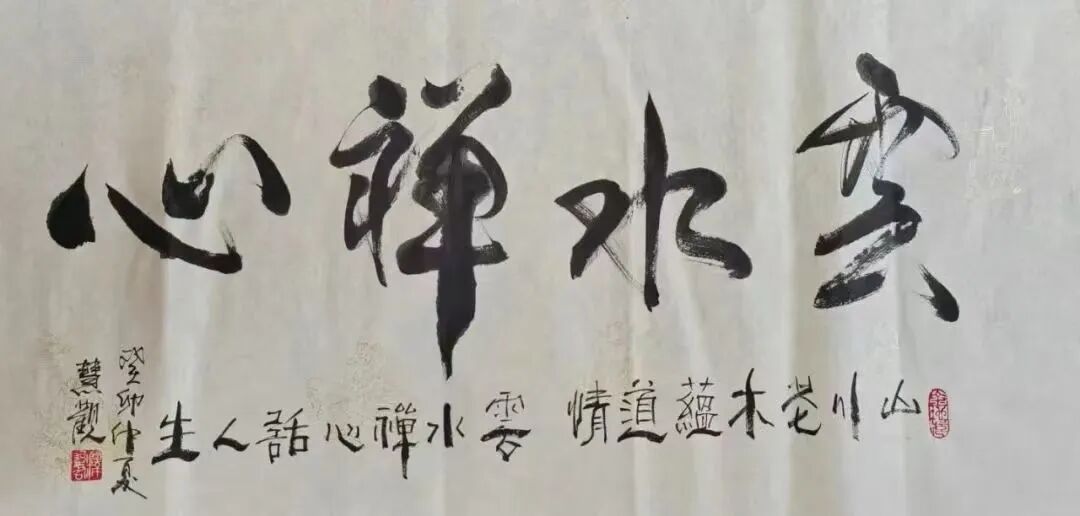 雲水禅心
山川老木蘊道情 雲水禪心話人生
癸卯仲夏
慧觀